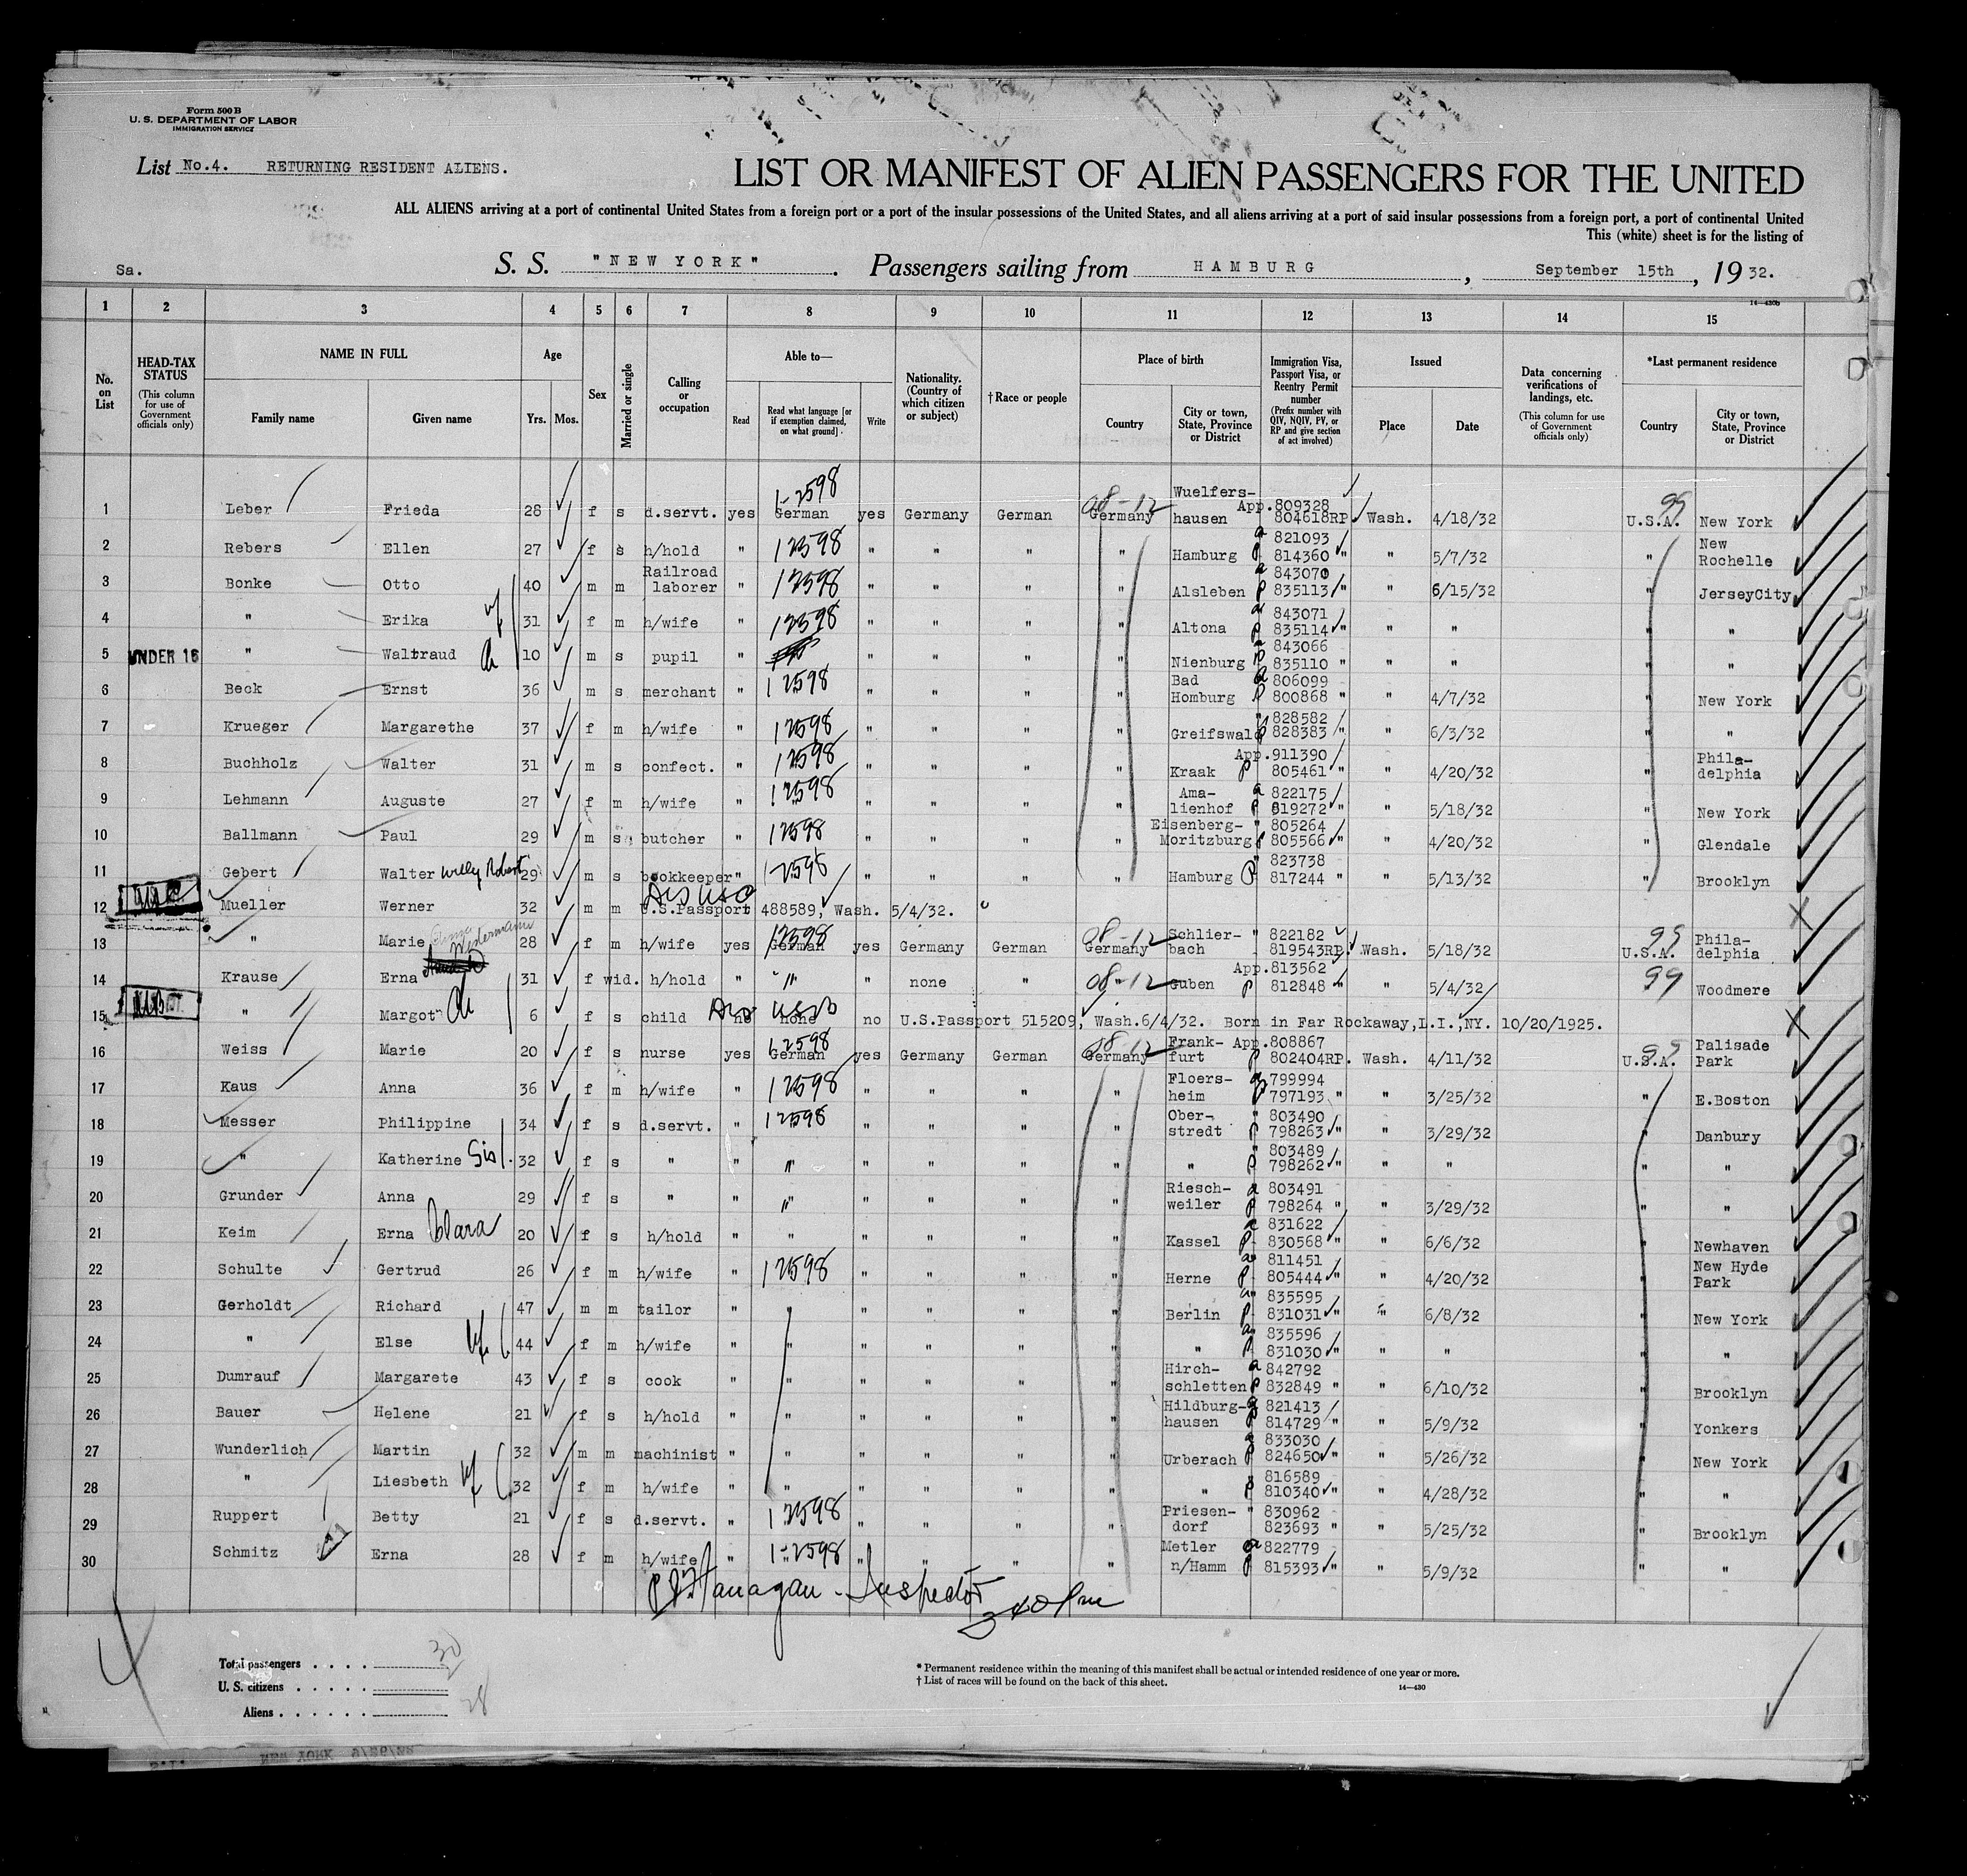 Form 500 B
U. S. DEPARTMENT OF LABOR
IMMIGRATION SERVICE
List No.4. RETURNING RESIDENT ALIENS.
LIST OR MANIFEST OF ALIEN PASSENGERS FOR THE UNITED
ALL ALIENS arriving at a port of continental United States from a foreign port or a port of the insular possessions of the United States, and all aliens arriving at a port of said insular possessions from a foreign port, a port of continental United
This (white) sheet is for the listing of
Sa. S. S. "NEW YORK" . Passengers sailing from HAMBURG , September 15th , 19 32.
14—430b
1 2 3 4 5 6 7 8 9 10 11 12 13 14 15
No. on List
HEAD-TAX STATUS (This column for use of Government officials only)
NAME IN FULL Family name Given name
Age Yrs. Mos.
Sex
Married or single
Calling or occupation
Able to— Read Read what language [or if exemption claimed, on what ground] Write
Nationality. (Country of which citizen or subject)
†Race or people
Place of birth Country City or town, State, Province or District
Immigration Visa, Passport Visa, or Reentry Permit number (Prefix number with QIV, NQIV, PV, or RP and give section of act involved)
Issued Place Date
Data concerning verifications of landings, etc. (This column for use of Government officials only)
*Last permanent residence Country City or town, State, Province or District
1 Leber Frieda 28 f s d.servt. yes 1-2598 German yes Germany German 08-12 Germany Wuelfers- hausen App.809328 804618RP Wash. 4/18/32 99 U.S.A. New York
2 Rebers Ellen 27 f s h/hold " 12598 " " " " Hamburg a 821093 P 814360 " " 5/7/32 " New Rochelle
3 Bonke Otto 40 m m Railroad laborer " 12598 " " " " Alsleben a 843070 P 835113 " " 6/15/32 " JerseyCity
4 " Erika wf 31 f m h/wife " 12598 " " " " Altona a 843071 P 835114 " " " " "
5 UNDER 16 " Waltraud ch 10 m s pupil " " " " " Nienburg a 843066 P 835110 " " " " "
6 Beck Ernst 36 m s merchant " 12598 " " " " Bad Homburg a 806099 P 800868 " " 4/7/32 " New York
7 Krueger Margarethe 37 f m h/wife " 12598 " " " " Greifswald " 828582 P 828383 " " 6/3/32 " "
8 Buchholz Walter 31 m s confect. " 12598 " " " " Kraak App.911390 P 805461 " " 4/20/32 " Phila- delphia
9 Lehmann Auguste 27 f m h/wife " 12598 " " " " Ama- lienhof a 822175 P 819272 " " 5/18/32 " New York
10 Ballmann Paul 29 m s butcher " 12598 " " " " Eisenberg- Moritzburg " 805264 P 805566 " " 4/20/32 " Glendale
11 Gebert Walter Willy Robert 29 m s bookkeeper " 12598 " " " " Hamburg " 823738 P 817244 " " 5/13/32 " Brooklyn
12 Mueller Werner 32 m m U.S.Passport 488589, Wash. 5/4/32.
13 " Marie 28 f m h/wife yes 12598 German yes Germany German 08-12 Germany Schlier- bach " 822182 819543RP. Wash. 5/18/32 99 U.S.A. Phila- delphia
14 Krause Erna 31 f wid. h/hold " " " none " 08-12 " Guben App.813562 P 812848 " " 5/4/32 99 Woodmere
15 " Margot ch 6 f s child no none no U.S.Passport 515209, Wash.6/4/32. Born in Far Rockaway,L.I.,NY. 10/20/1925.
16 Weiss Marie 20 f s nurse yes 12598 German yes Germany German 08-12 Germany Frank- furt App.808867 P 802404RP. Wash. 4/11/32 99 U.S.A. Palisade Park
17 Kaus Anna 36 f m h/wife " 12598 " " " " Floers- heim a 799994 P 797193 " " 3/25/32 " E.Boston
18 Messer Philippine 34 f s d.servt. " 12598 " " " " Ober- stredt " 803490 P 798263 " " 3/29/32 " Danbury
19 " Katherine Sis 32 f s " " " " " " " " " 803489 P 798262 " " " " "
20 Grunder Anna 29 f s " " " " " " " Riesch- weiler a 803491 P 798264 " " 3/29/32 " "
21 Keim Erna Clara 20 f s h/hold " " " " " " Kassel a 831622 P 830568 " " 6/6/32 " Newhaven
22 Schulte Gertrud 26 f m h/wife " 12598 " " " " Herne a 811451 P 805444 " " 4/20/32 " New Hyde Park
23 Gerholdt Richard 47 m m tailor " " " " " " Berlin a 835595 P 831031 " " 6/8/32 " New York
24 " Else wf 44 f m h/wife " " " " " " " a 835596 P 831030 " " " " "
25 Dumrauf Margarete 43 f s cook " " " " " " Hirch- schletten a 842792 P 832849 " " 6/10/32 " Brooklyn
26 Bauer Helene 21 f s h/hold " " " " " " Hildburg- hausen a 821413 P 814729 " " 5/9/32 " Yonkers
27 Wunderlich Martin 32 m m machinist " " " " " " Urberach a 833030 P 824650 " " 5/26/32 " New York
28 " Liesbeth wf 32 f m h/wife " " " " " " " " 816589 P 810340 " " 4/28/32 " "
29 Ruppert Betty 21 f s d.servt. " 12598 " " " " Priesen- dorf " 830962 823693 " " 5/25/32 " Brooklyn
30 Schmitz Erna 28 f m h/wife " 1-2598 " " " " Metler n/Hamm a 822779 P 815393 " " 5/9/32 " "
Flanagan - Inspector
Total passengers . . . . 30
U. S. citizens . . . . .
Aliens . . . . . . 28
* Permanent residence within the meaning of this manifest shall be actual or intended residence of one year or more.
† List of races will be found on the back of this sheet.
14—430